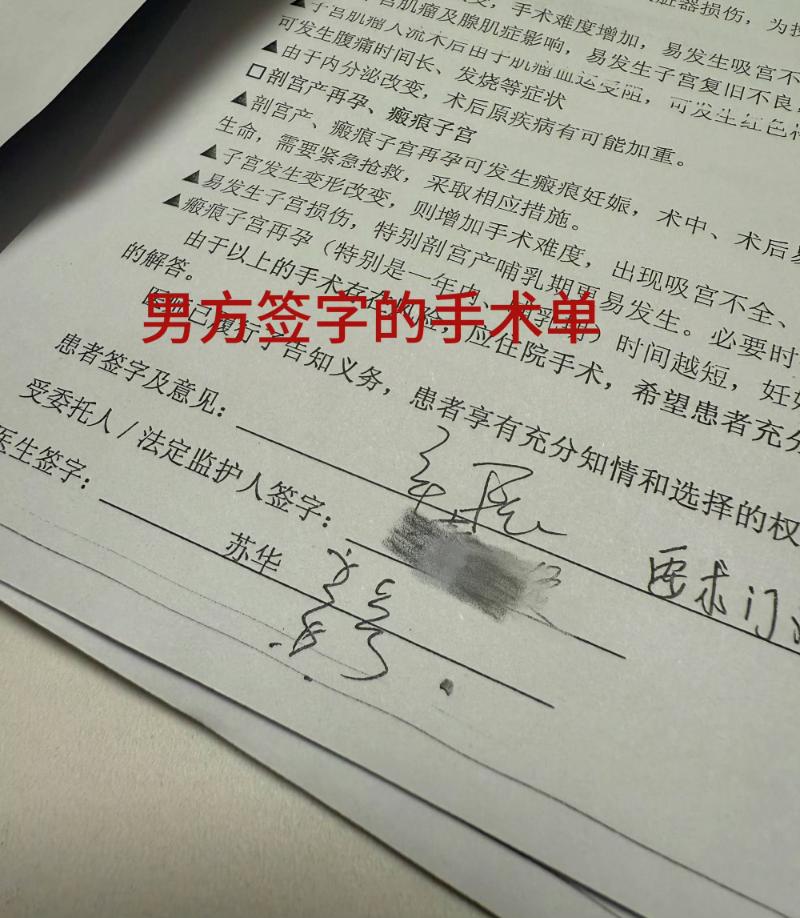 脏器损伤，为
手术难度增加，易发生吸宫不
▲子宫肌瘤及腺肌症影响，易发生子宫复旧不良，
▲子宫肌瘤人流术后由于肌瘤血运受阻，可发生红色
可发生腹痛时间长、发烧等症状
▲由于内分泌改变，术后原疾病有可能加重。
□剖宫产再孕、瘢痕子宫
▲剖宫产、瘢痕子宫再孕可发生瘢痕妊娠，术中、术后易
生命，需要紧急抢救，采取相应措施。
▲子宫发生变形改变，则增加手术难度，出现吸宫不全、
▲易发生子宫损伤，特别剖宫产哺乳期更易发生。必要时
▲瘢痕子宫再孕（特别是一年内、哺乳期）时间越短，妊
由于以上的手术存在风险，应住院手术，希望患者充分
的解答。
男方签字的手术单
医院已履行了告知义务，患者享有充分知情和选择的权
患者签字及意见：
要求门
受委托人/法定监护人签字：
医生签字：
苏华